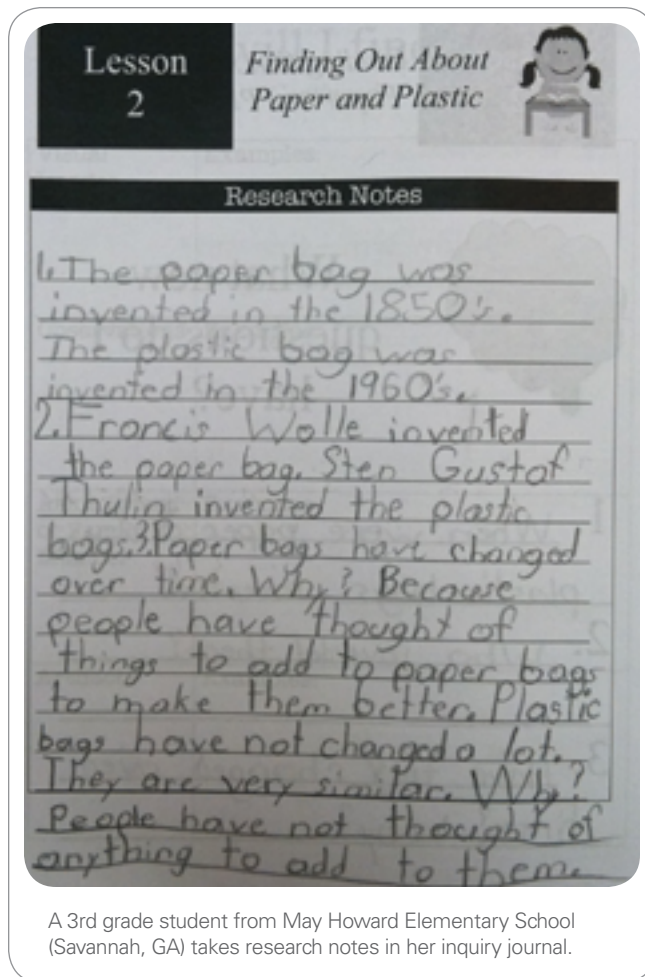 Lesson
2
Finding Out About
Paper and Plastic
Research Notes
1. The paper bag was
invented in the 1850's.
The plastic bag was
invented in the 1960's.
2. Francis Wolle invented
the paper bag. Sten Gustaf
Thulin invented the plastic
bags. 3. Paper bags have changed
over time. Why? Because
people have thought of
things to add to paper bags
to make them better. Plastic
bags have not changed a lot.
They are very similar. Why?
People have not thought of
anything to add to them.
A 3rd grade student from May Howard Elementary School
(Savannah, GA) takes research notes in her inquiry journal.